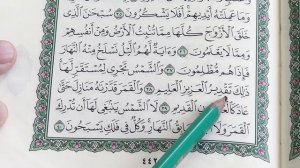 وَمَا عَمِلَتْهُ أَيْدِيهِمْ أَفَلَا يَشْكُرُونَ ٣٥ سُبْحَٰنَ ٱلَّذِى
خَلَقَ ٱلْأَزْوَٰجَ كُلَّهَا مِمَّا تُنۢبِتُ ٱلْأَرْضُ وَمِنْ أَنفُسِهِمْ
وَمِمَّا لَا يَعْلَمُونَ ٣٦ وَءَايَةٌ لَّهُمُ ٱلَّيْلُ نَسْلَخُ مِنْهُ ٱلنَّهَارَ
فَإِذَا هُم مُّظْلِمُونَ ٣٧ وَٱلشَّمْسُ تَجْرِى لِمُسْتَقَرٍّ لَّهَا
ذَٰلِكَ تَقْدِيرُ ٱلْعَزِيزِ ٱلْعَلِيمِ ٣٨ وَٱلْقَمَرَ قَدَّرْنَٰهُ مَنَازِلَ حَتَّىٰ
عَادَ ٱلْقَدِيمِ ٣٩ لَا ٱلشَّمْسُ يَنۢبَغِى لَهَآ أَن تُدْرِكَ
ٱلْقَمَرَ وَلَا سَابِقُ ٱلنَّهَارِ وَكُلٌّ فِى فَلَكٍ يَسْبَحُونَ ٤٠
٤٤٢